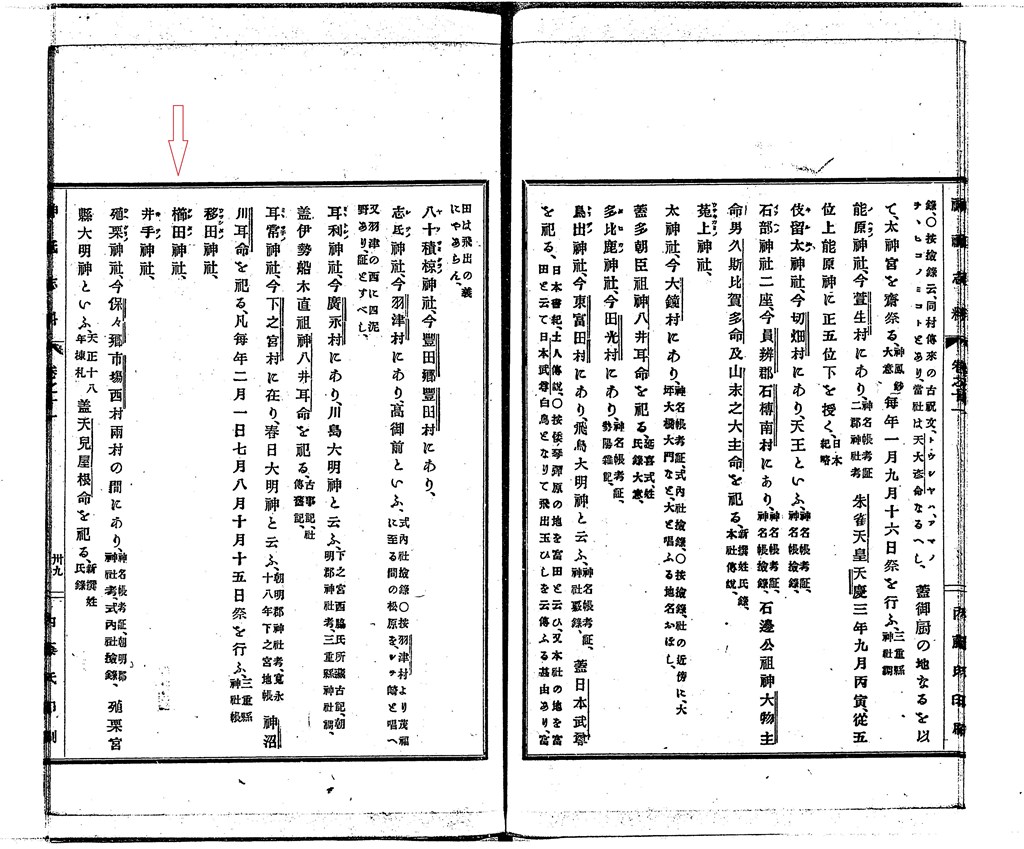 錄、〇按撿錄云、同村傳來の古祝文、トウレヤハ、アマノ
チ、ヒコノミコトとあり、當社は天大恣命なるへし、
蓋御厨の地なるを以
て、太神宮を齋祭る、神鳳鈔大意毎年一月九月十六日祭を行ふ、三重縣神社調
能原神社、今萱生村にあり、神名帳考証、二郡神社考朱雀天皇天慶三年九月丙寅、從五
位上能原神に正五位下を授く、日本紀略
伎留太神社、今切畑村にあり、天王といふ、神名帳考証、神名帳撿錄、
石部神社二座、今員辨郡石榑南村にあり、神名帳考証、神名帳撿錄、石邊公祖神大物主
命男久斯比賀多命及山末之大主命を祀る、新撰姓氏錄、本社傳說、
菟上神社、
太神社、今大鐘村にあり、神名帳考証、式內社撿錄、〇按撿錄、社の近傍に大坪大橋大門など、大と唱ふる地名おほし、
蓋多朝臣祖神八井耳命を祀る、延喜式姓氏錄大意、
多比鹿神社、今田光村にあり、神名帳考証、勢陽雜記、
鳥出神社、今東富田村にあり、飛鳥大明神と云ふ、神名帳考証、神社覈錄、蓋日本武尊
を祀る、日本書紀、土人傳說、〇按倭琴彈原の地を富田と云ひ、又本社の地を富田と云て日本武尊白鳥となりて飛出玉ひしを云傳ふる甚由あり富
田は飛出の義にやあらん、
八十積椋神社、今豐田鄕豐田村にあり、
志氐神社、今羽津村にあり、高御前といふ、式內社撿錄〇按羽津村より茂福に至る間の松原を、シテ崎と唱へ
又羽津の西に四泥野あり、証とすべし、
耳利神社、今廣永村にあり、川島大明神と云ふ、下之宮西脇氏所藏古記、朝明郡神社考、三重縣神社調、
蓋伊勢船木直祖神八井耳命を祀る、古事記、社傳舊記、
耳常神社、今下之宮村に在り、春日大明神と云ふ、朝明郡神社考、寬永十八年下之宮地帳神沼
川耳命を祀る、凡毎年二月一日七月八月十月十五日祭を行ふ、三重縣神社帳
移田神社、
櫛田神社、
井手神社、
殖栗神社、今保々鄕市場西村兩村の間にあり、神名帳考証、朝明郡神社考、式內社撿錄、殖栗宮
縣大明神といふ、天正十八年棟札蓋天兒屋根命を祀る、新撰姓氏錄
卅九